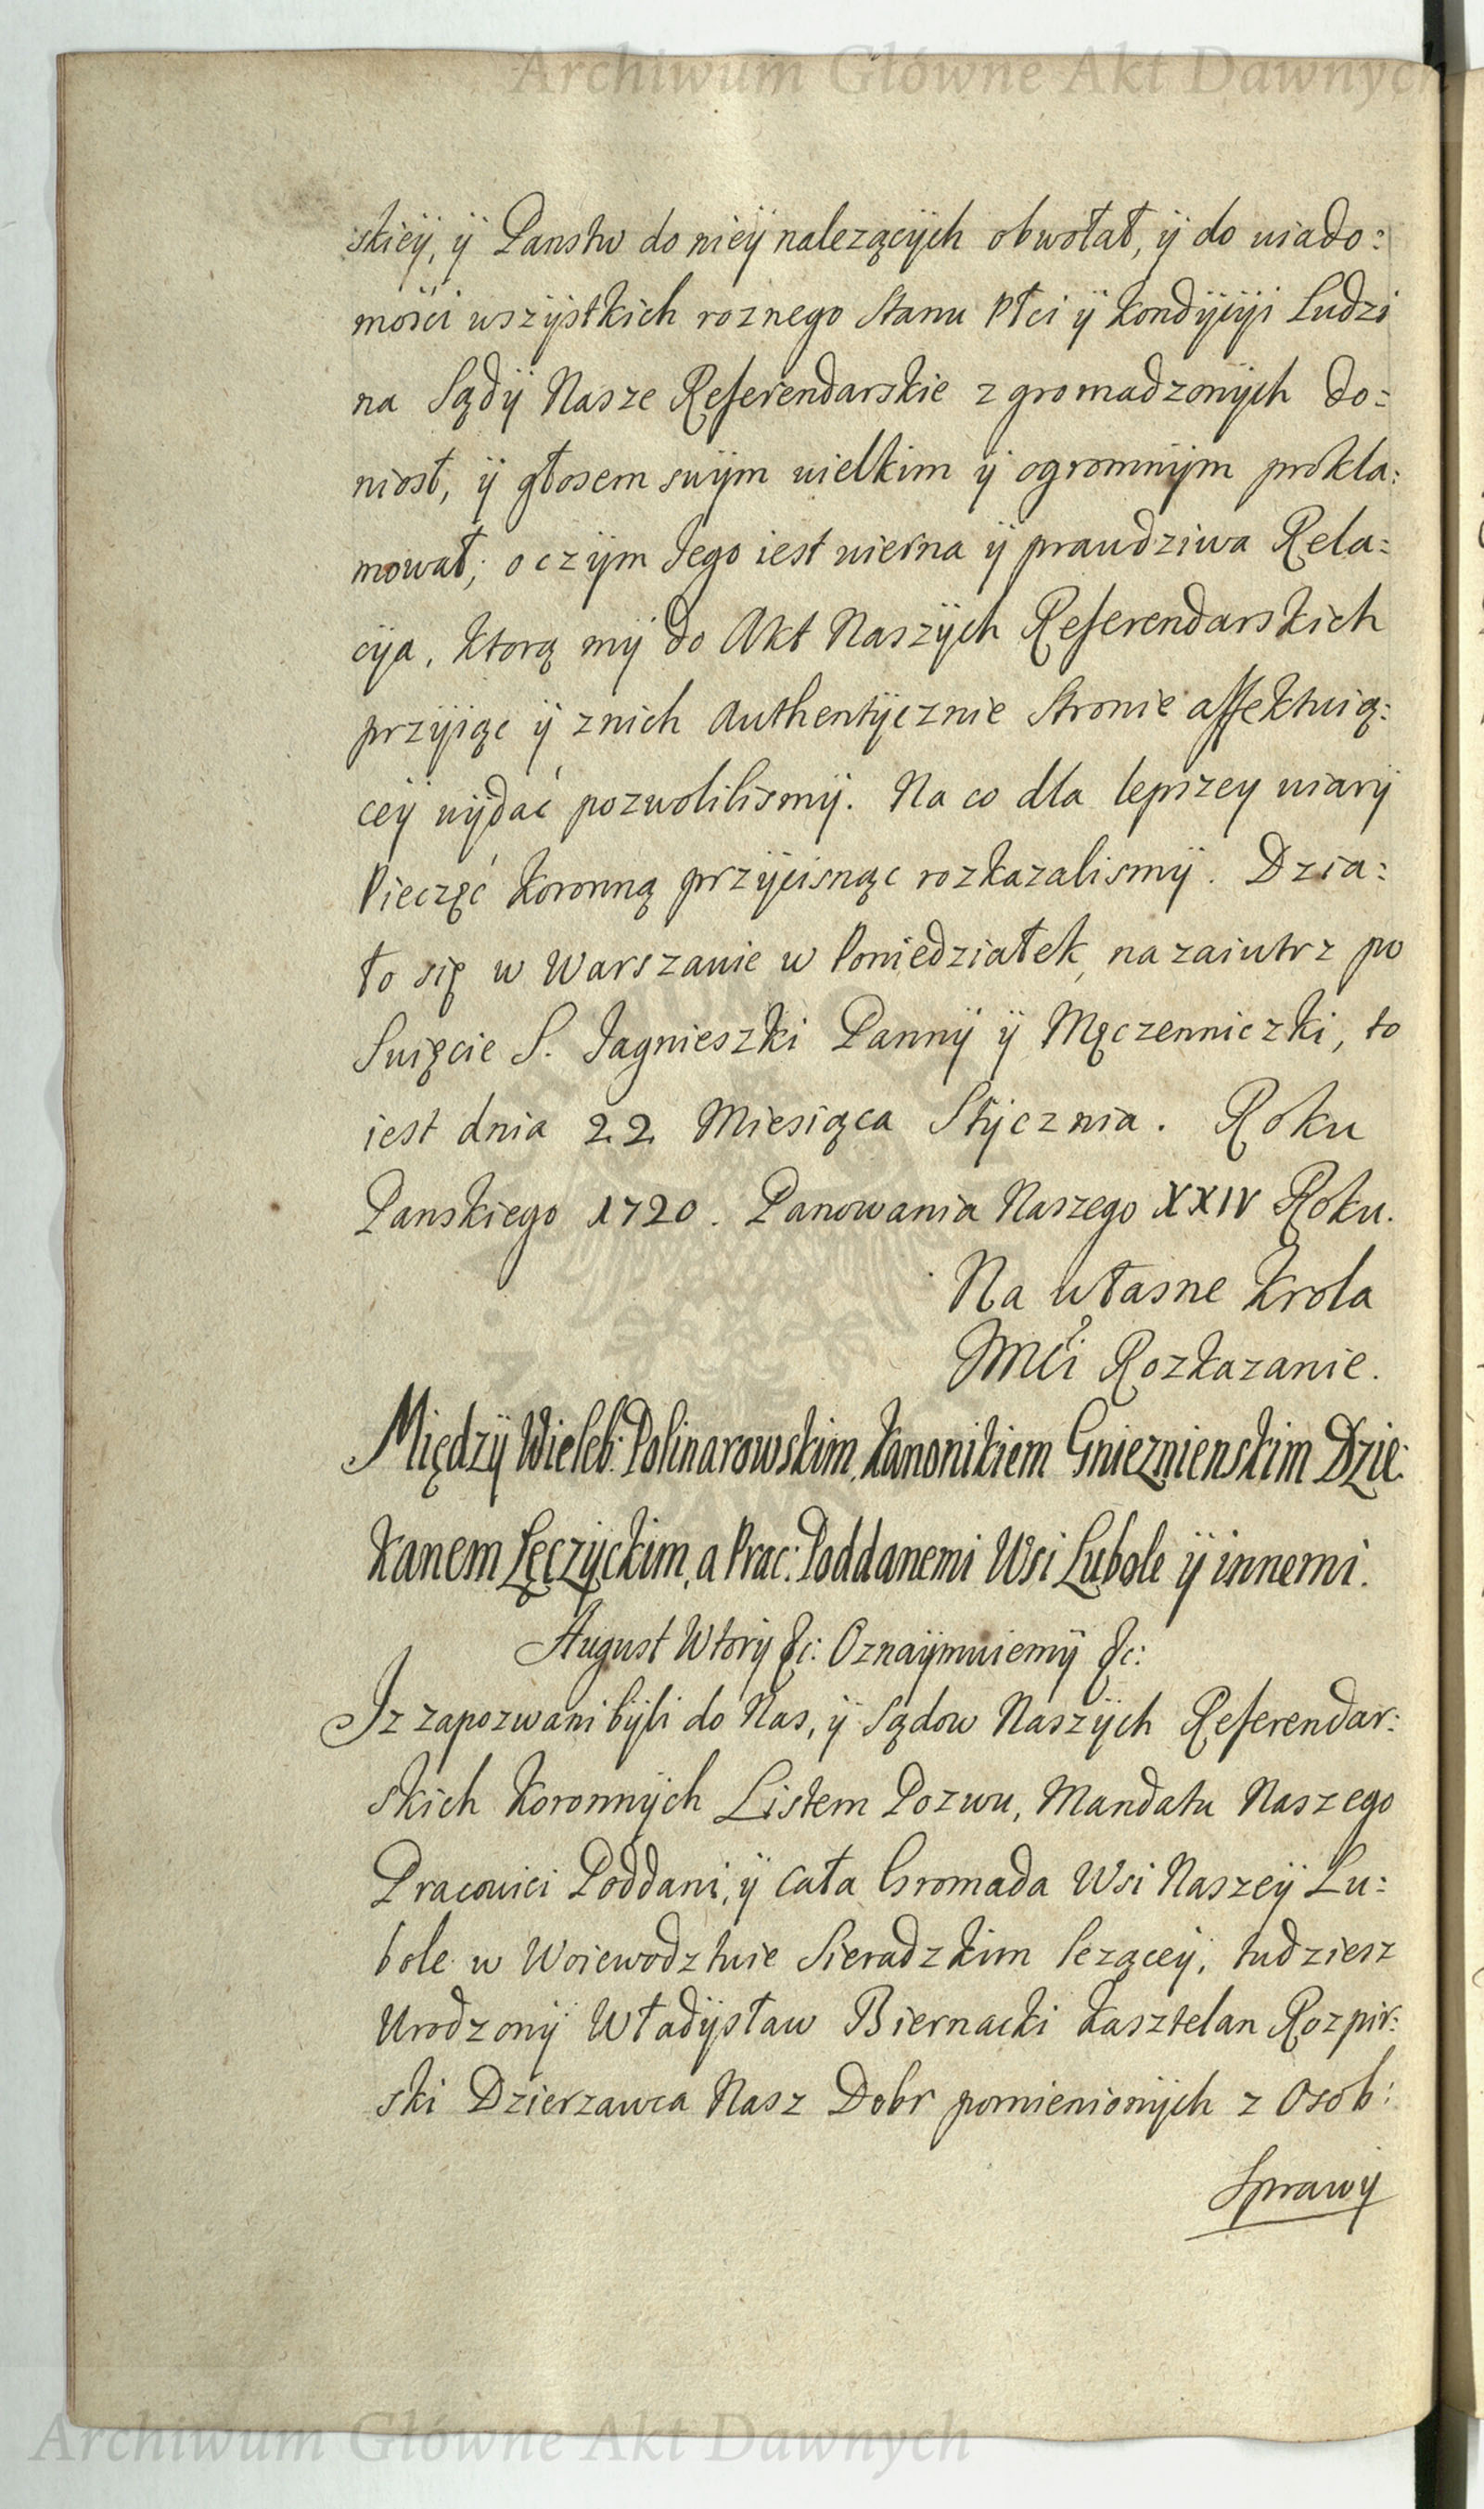 Archiwum Główne Akt Dawnych
skieÿ, ÿ Panstw do nieÿ nalezącÿch obwołał, ÿ do wiado:
mośći wszÿstkich roznego Stanu Płci ÿ Kondÿcÿi Ludzi
na Sądÿ Nasze Referendarskie zgromadzonÿch do=
niosł, ÿ głosem swÿm wielkim ÿ ogromnÿm prokla:
mował; oczÿm Jego iest wierna ÿ prawdziwa Rela=
cÿa, Ktorą mÿ do Akt Naszÿch Referendarskich
przÿiąc ÿ znich Authentÿcznie Stronie affektuią:
ceÿ wÿdać pozwolilismÿ. Na co dla lepszey wiarÿ
Pieczęć Koronną przÿcisnąc rozkazalismÿ. Dzia:
ło się w Warszawie w Poniedziałek, nazaiutrz po
Swięcie S. Jagnieszki Pannÿ ÿ Męczenniczki, to
iest dnia 22 Miesiąca Stÿcznia. Roku
Panskiego 1720. Panowania Naszego XXIV Roku.
Na własne Krola
JMći Rozkazanie.
Międzÿ Wieleb: Polinarowskim, Kanonikiem Gnieznienskim Dzie:
kanem Lęczÿckim, a Prac: Poddanemi Wsi Lubole ÿ innemi.
August Wtorÿ &c: Oznaÿmuiemÿ &c:
Iz zapozwani bÿli do Nas, ÿ Sądow Naszÿch Referendar:
skich Koronnÿch Listem Pozwu, Mandatu Naszego
Pracowici Poddani, ÿ cała Gromada Wsi Naszeÿ Lu=
bole w Woiewodztwie Sieradzkim lezącey, tudziesz
Urodzonÿ Władÿsław Biernacki Kasztelan Rozpir:
ski Dzierzawca Nasz Dobr pomienionÿch z Osob:
Sprawÿ
Archiwum Główne Akt Dawnych